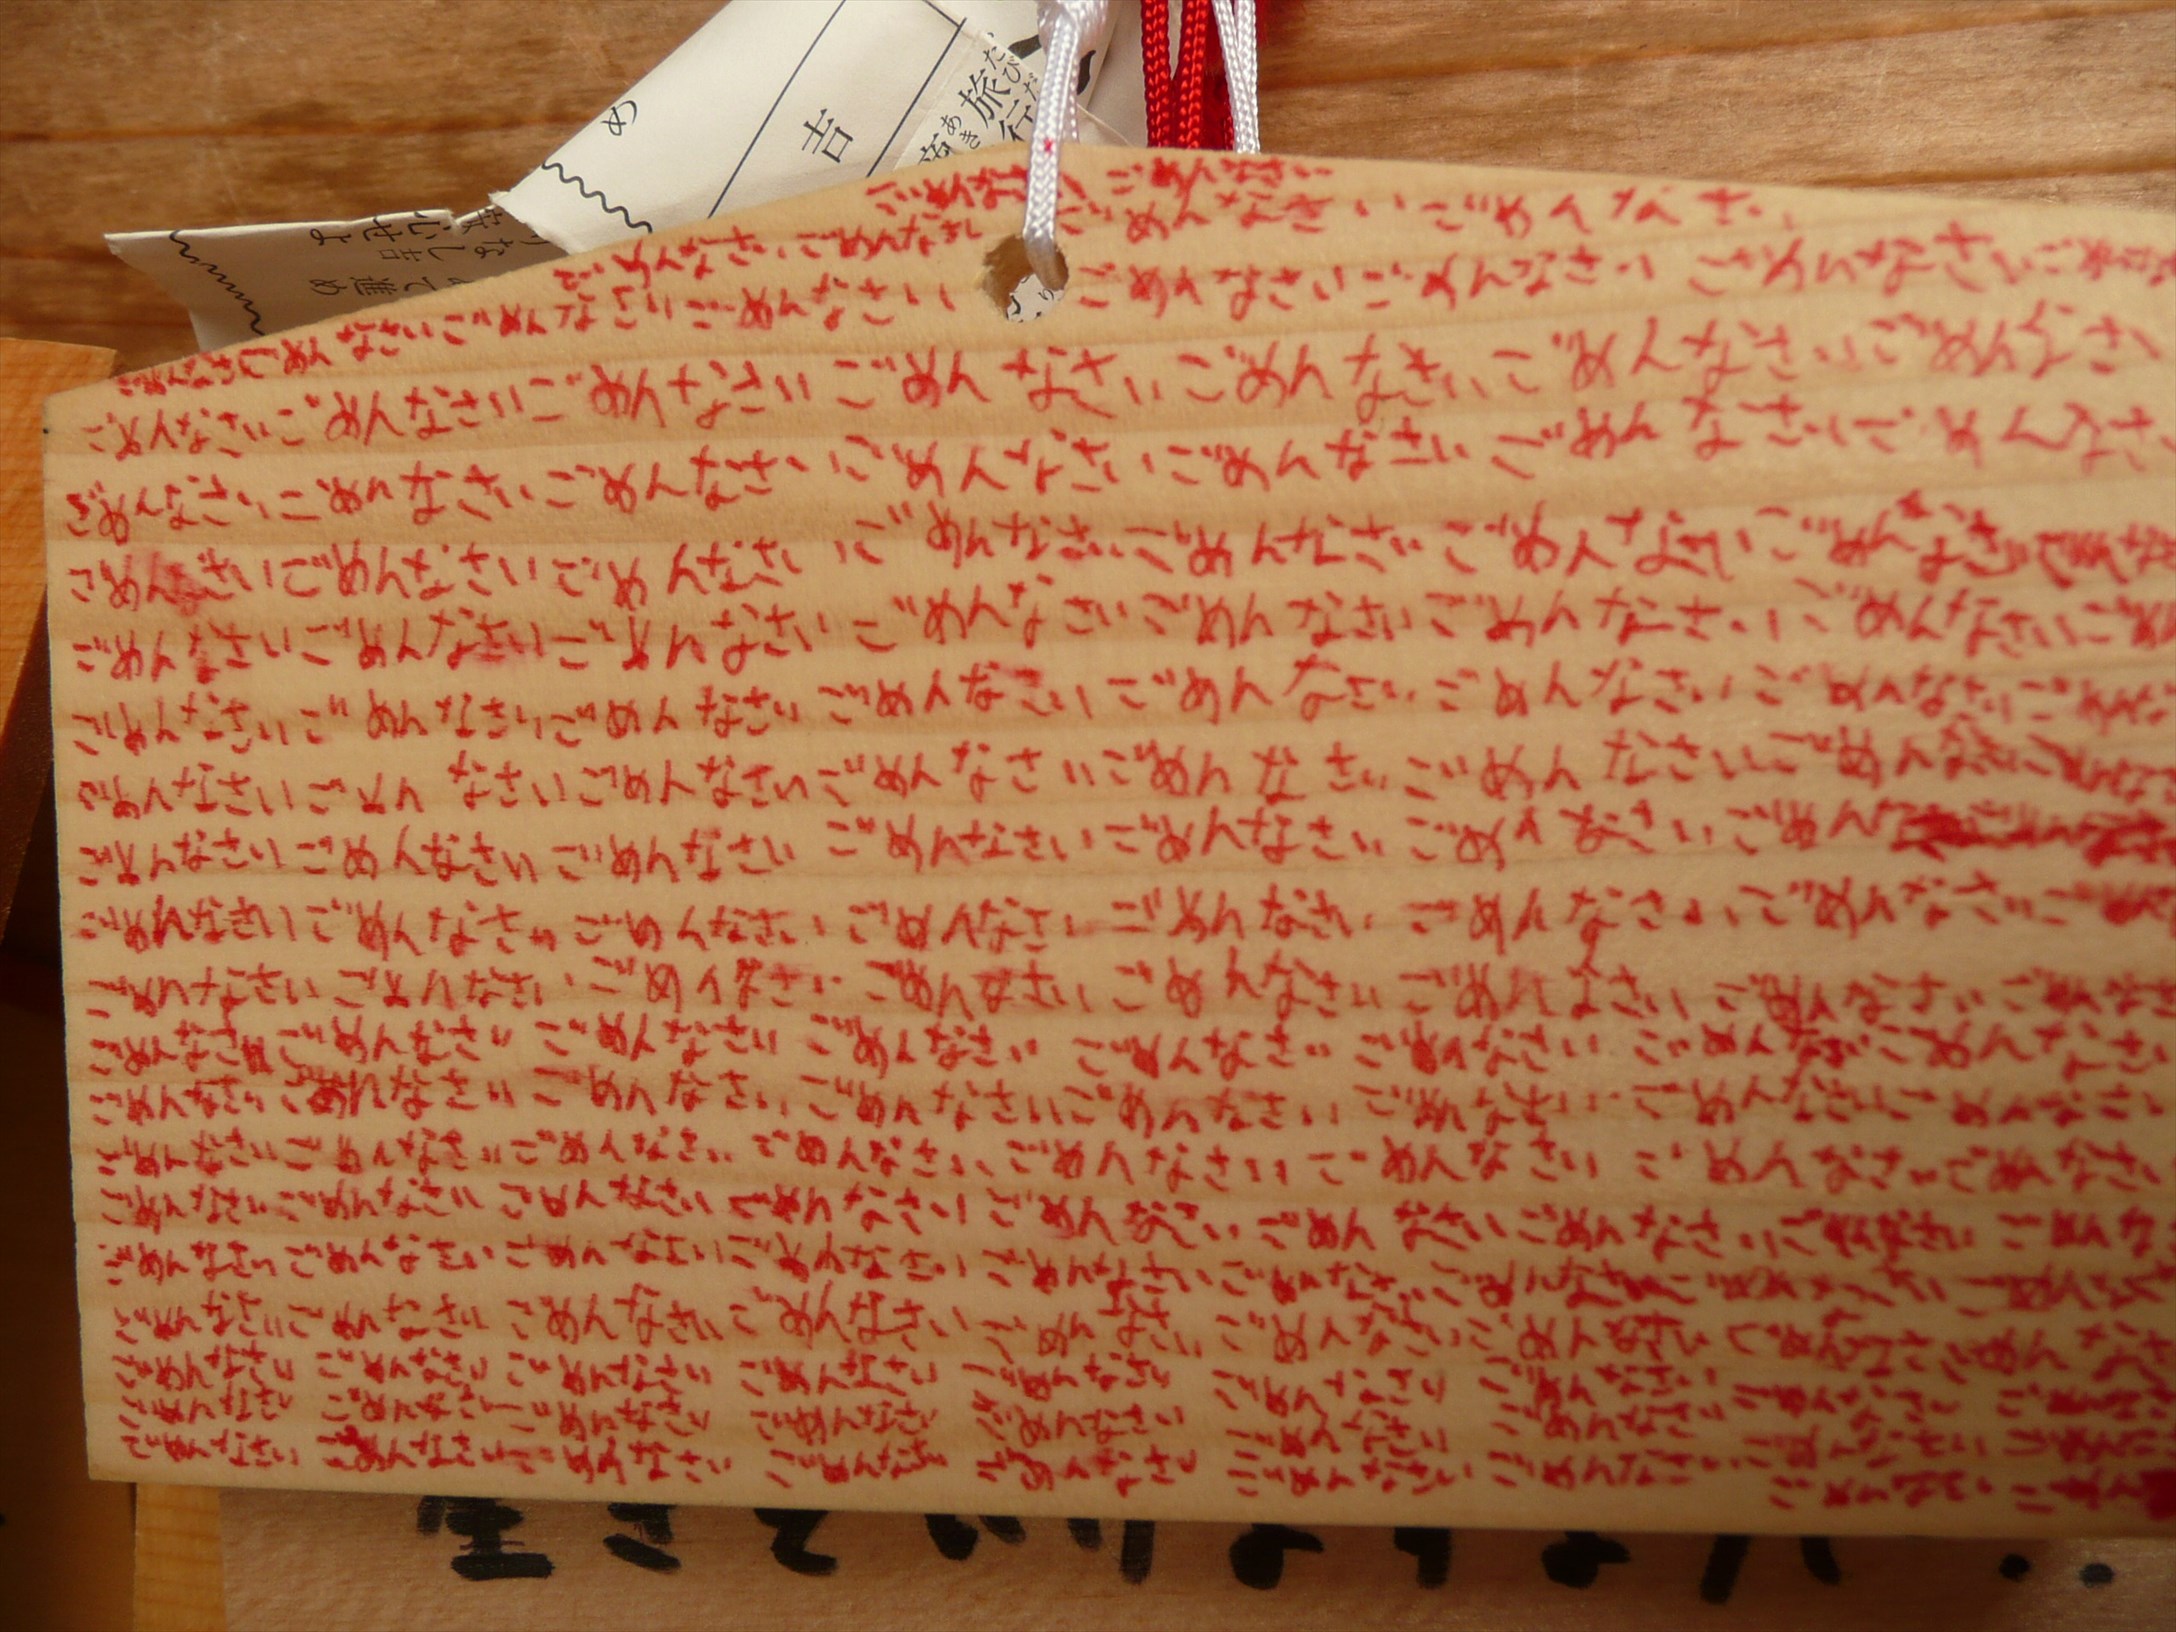 め
吉
旅行
ごめんなさい ごめんなさい
ごめんなさいごめんなさい ごめんなさい ごめんなさい
ごめんなさいごめんなさいごめんなさいごめんなさい ごめんなさいごめんなさい ごめんなさいごめんな
ごめんなさいごめんなさいごめんなさいごめんなさいごめんなさいごめんなさいごめんなさ
ごめんなさいごめんなさいごめんなさいごめんなさいごめんなさいごめんなさいごめんなさ
ごめんなさいごめんなさいごめんなさいごめんなさいごめんなさいごめんなさいごめんなさいごめんな
ごめんなさいごめんなさいごめんなさいごめんなさいごめんなさいごめんなさいごめんなさいごめ
ごめんなさいごめんなさいごめんなさいごめんなさいごめんなさいごめんなさいごめんなさいごめん
ごめんなさいごめんなさいごめんなさいごめんなさいごめんなさいごめんなさいごめんなさいごめんな
ごめんなさいごめんなさいごめんなさいごめんなさいごめんなさいごめんなさいごめんな
ごめんなさいごめんなさいごめんなさいごめんなさいごめんなさいごめんなさいごめんなさい
ごめんなさいごめんなさいごめんなさいごめんなさいごめんなさいごめんなさいごめんなさいごめんな
ごめんなさいごめんなさいごめんなさいごめんなさいごめんなさいごめんなさいごめんなさいごめんなさ
ごめんなさいごめんなさいごめんなさいごめんなさいごめんなさいごめんなさいごめんなさいごめんなさい
ごめんなさいごめんなさいごめんなさいごめんなさいごめんなさいごめんなさいごめんなさいごめんなさい
ごめんなさいごめんなさいごめんなさいごめんなさいごめんなさいごめんなさいごめんなさいごめんなさいごめんな
ごめんなさいごめんなさいごめんなさいごめんなさいごめんなさいごめんなさいごめんなさいごめんなさいごめん
ごめんなさいごめんなさいごめんなさいごめんなさいごめんなさいごめんなさいごめんなさいごめんなさいごめんなさ
ごめんなさいごめんなさいごめんなさいごめんなさいごめんなさいごめんなさいごめんなさいごめんなさいごめんな
ごめんなさいごめんなさいごめんなさいごめんなさいごめんなさいごめんなさいごめんなさいごめんなさいごめん
ごめんなさいごめんなさいごめんなさいごめんなさいごめんなさいごめんなさいごめんなさい
ごめんなさいごめん